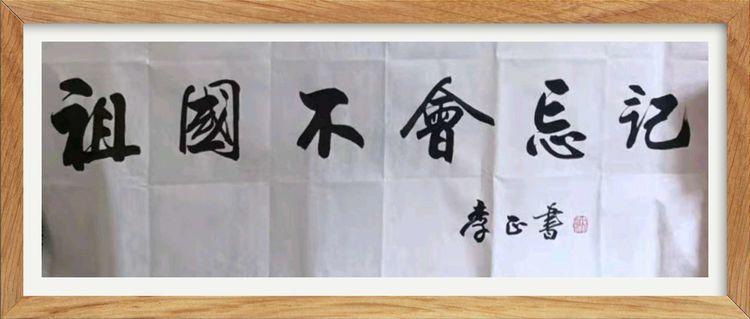 祖國不會忘记
李正書